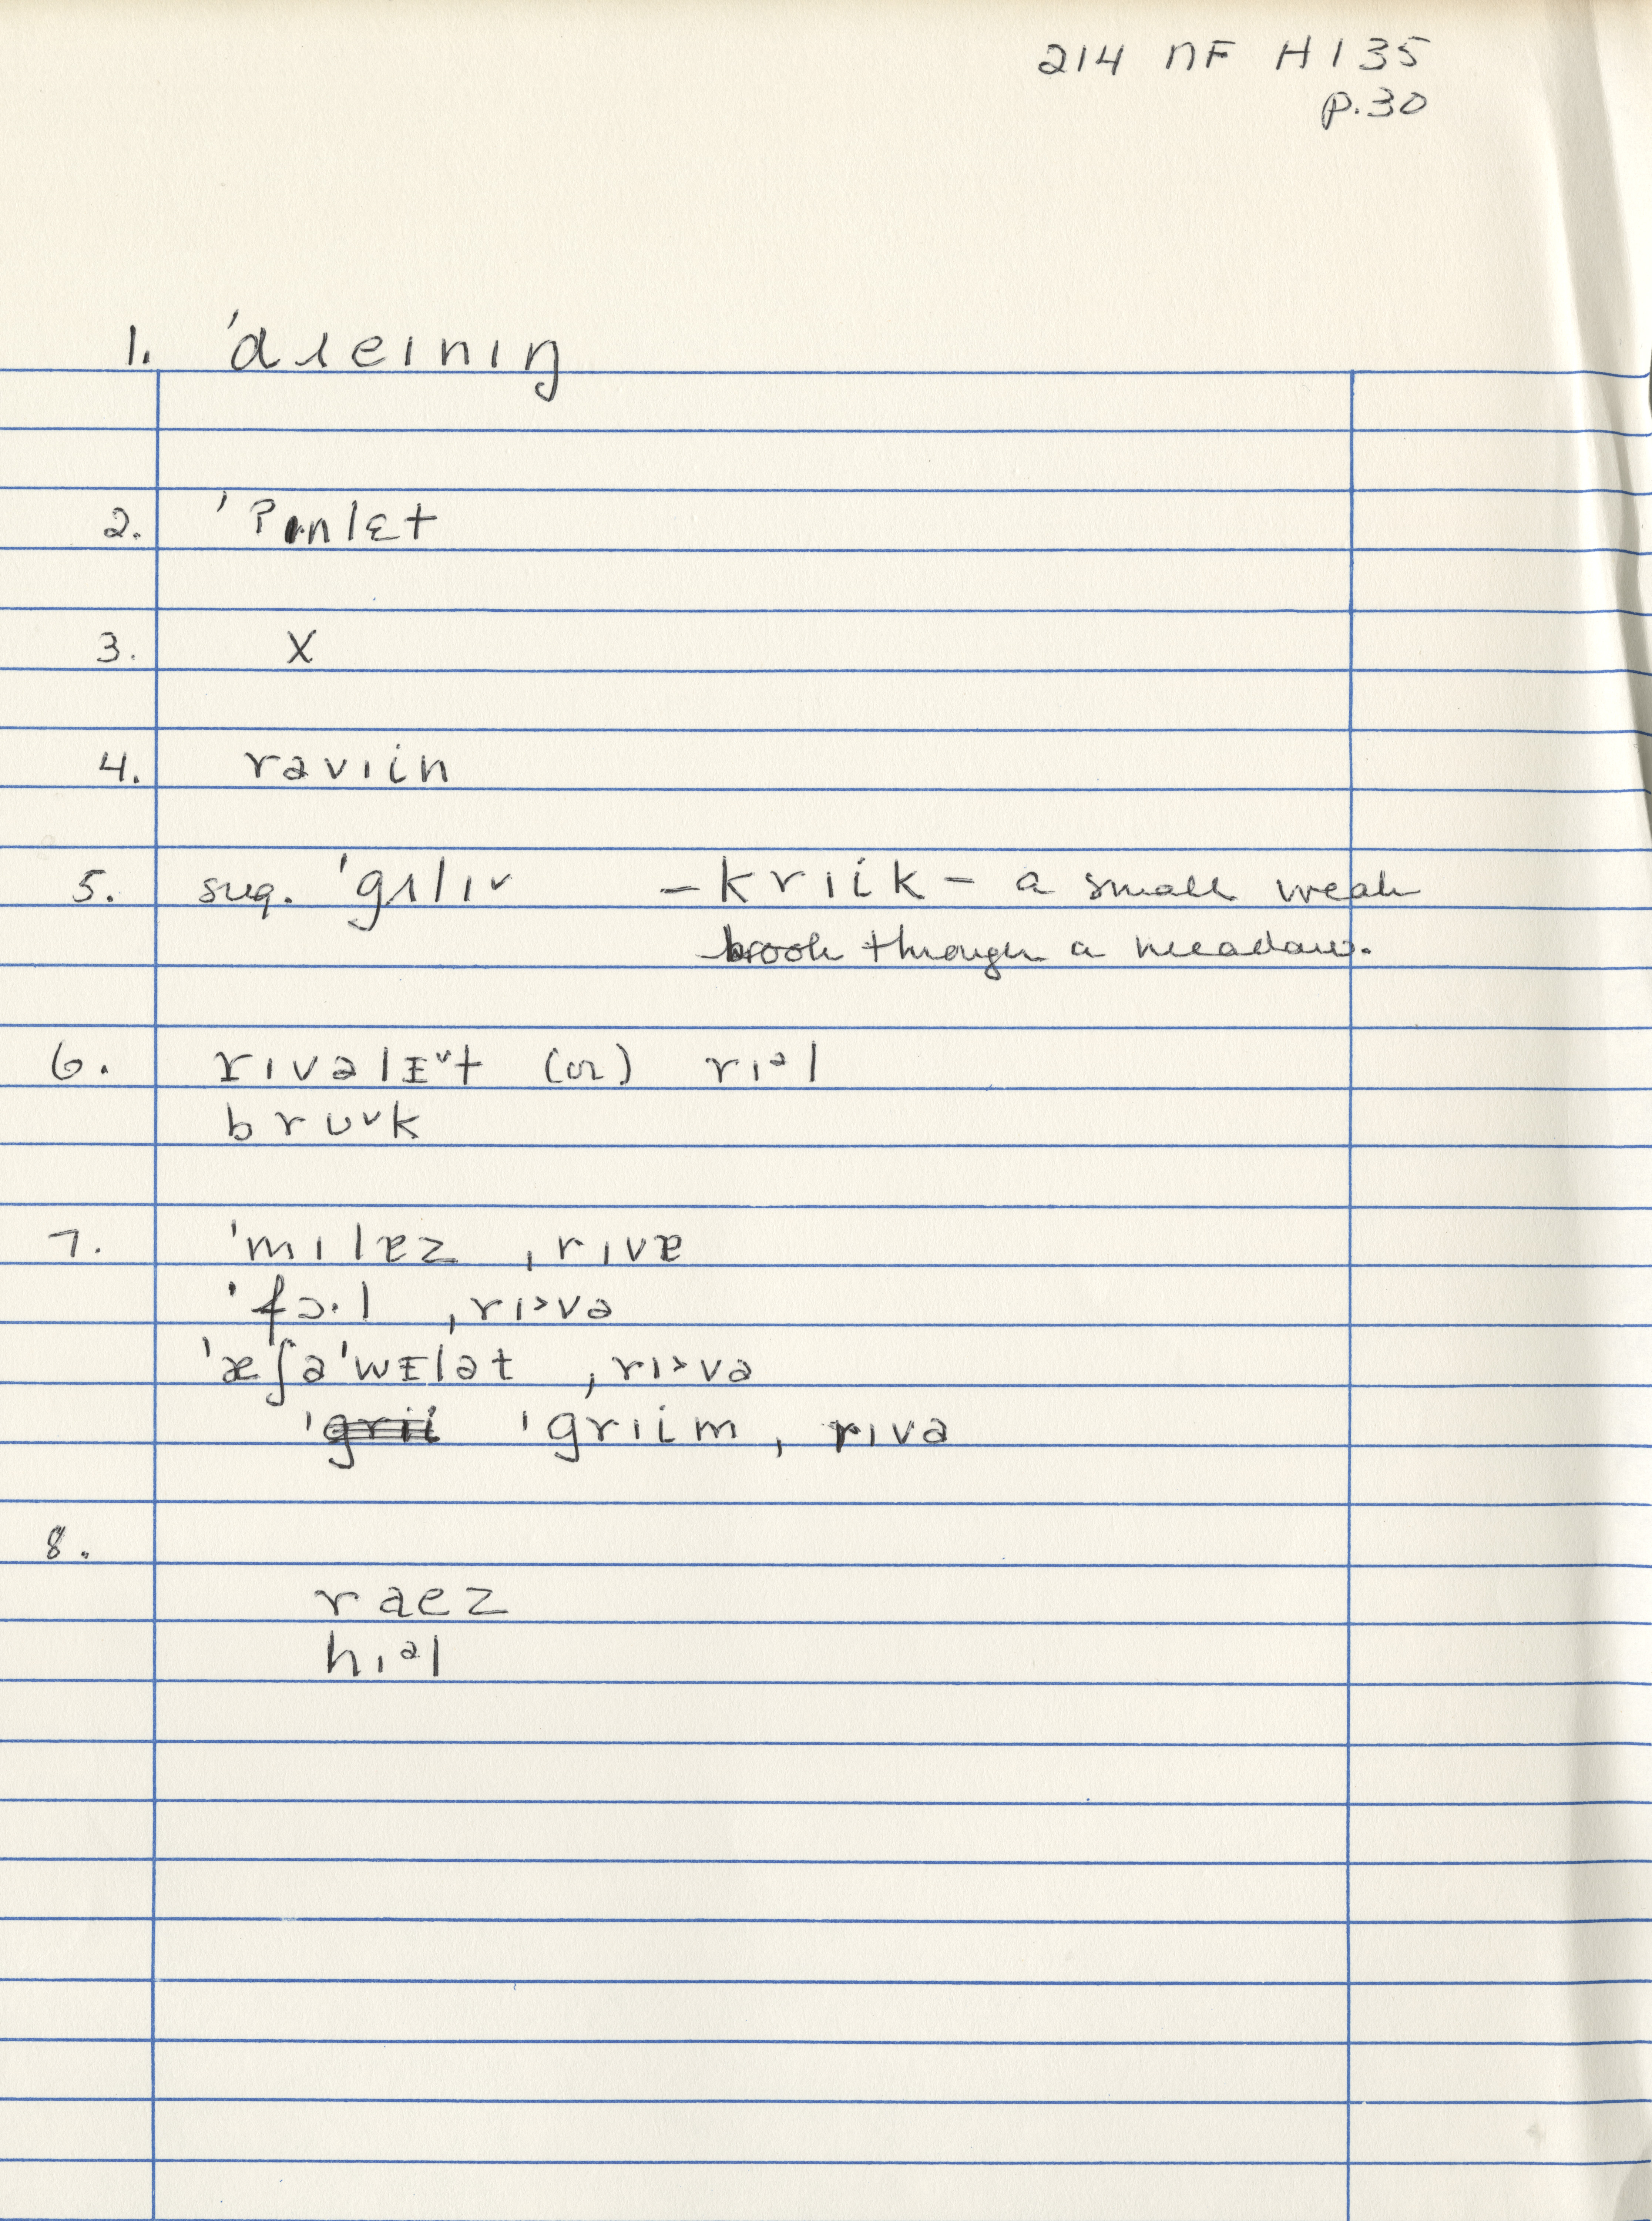 214 NF H135
p.30
1. ˈdɹeɪnɪŋ
2. ˈʔɪnlɛt
3. X
4. rəvɪin
5. sug. ˈgɪlɪ˅ – krɪik – a small weak
brook through a meadow.
6. rɪvəlᵻ˅t (or) rɪᵊl
brʊ˅k
7. ˈmɪlɐz ˌrɪvɐ
ˈfɔ·l ˌrɪ˃və
ˈæʃəˈwᵻlət ˌrɪ˃və
ˈgrɪi ˈgrɪim ˌrɪvə
8.
raez
hɪᵊl